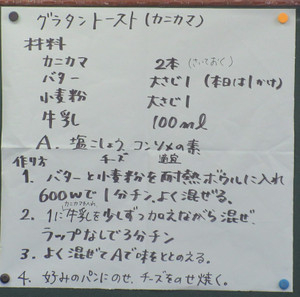 グラタントースト(カニカマ)
材料
カニカマ 2本 (さいておく)
バター 大さじ1 (本日は1かけ)
小麦粉 大さじ1
牛乳 100ml
A. 塩こしょう コンソメの素
作り方 チーズ 適宜
1. バターと小麦粉を耐熱ボウルに入れ
600Wで1分チン。よく混ぜる。
カニカマを入れ
2. 1に牛乳を少しずつ加えながら混ぜ、
ラップなしで3分チン
3. よく混ぜてAで味をととのえる。
4. 好みのパンにのせ、チーズをのせ焼く。